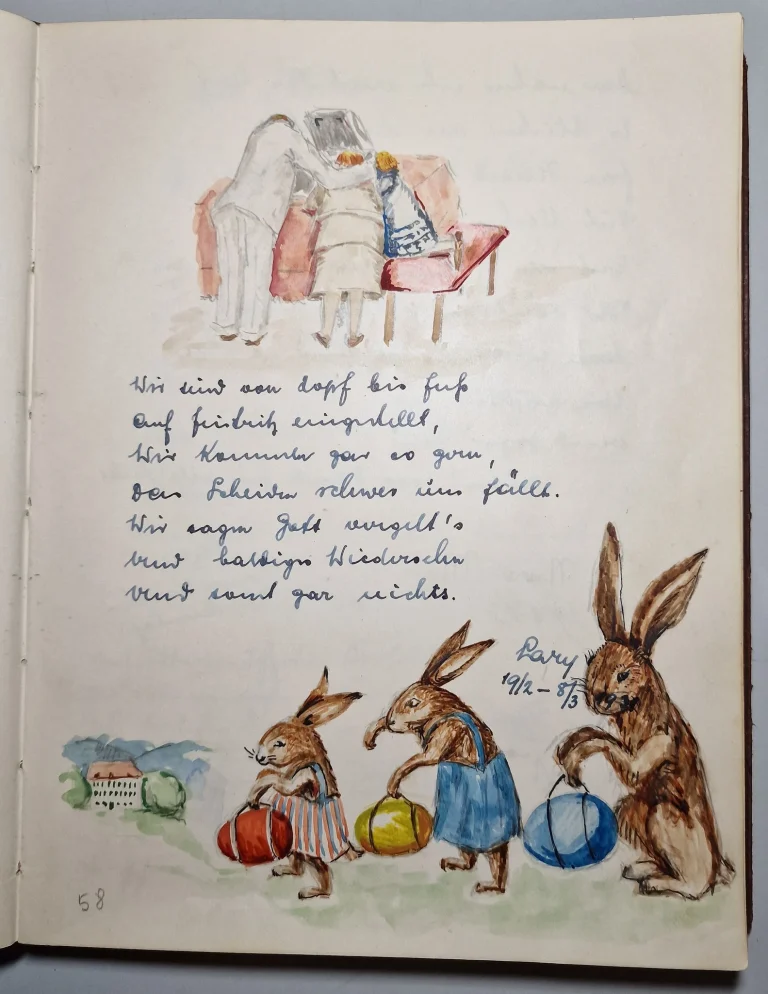 Wir sind von Kopf bis Fuß
auf Feistritz eingestellt,
Wir kommen gar so gern,
das Scheiden schwer uns fällt.
Wir sagen Gott vergelt's
und baldiges Wiedersehn
und sonst gar nichts.
Lary
19/2 – 8/3
58